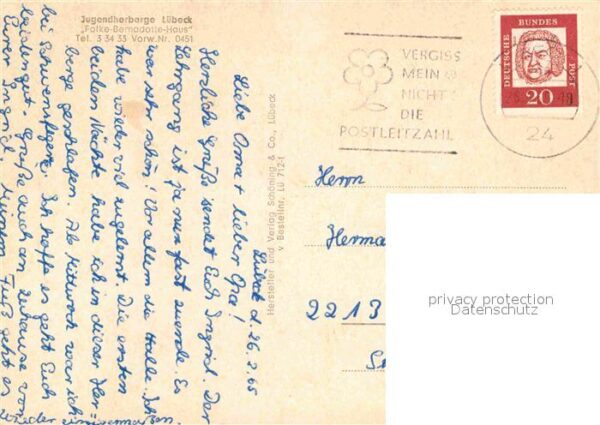 Jugendherberge Lübeck
„Folke-Bernadotte-Haus"
Tel. 3 34 33 Vorw.Nr. 0451
Lübeck d. 26.2.65
Liebe Oma + lieber Opa!
Herzliche Grüße sendet Euch Ingrid. Der
Lehrgang ist ja nun fast zuende. Es
war sehr schön! Vor allem die Halle. Ich
habe wieder viel zugelernt. Die ersten
beiden Nächte habe ich in dieser Her-
berge geschlafen. Ab Mittwoch war ich
bei Ich hoffe es geht Euch
beiden gut. Grüße auch an Zuhause von
Eurer Ingrid. Meinem Fuß geht es
wieder einigermaßen.
Hersteller und Verlag Schöning & Co., Lübeck
v Bestellnr. Lü 712-I
VERGISS
MEIN
NICHT
DIE
POSTLEITZAHL
24
DEUTSCHE BUNDES POST
20
Herrn
Herma
2213
privacy protection
Datenschutz